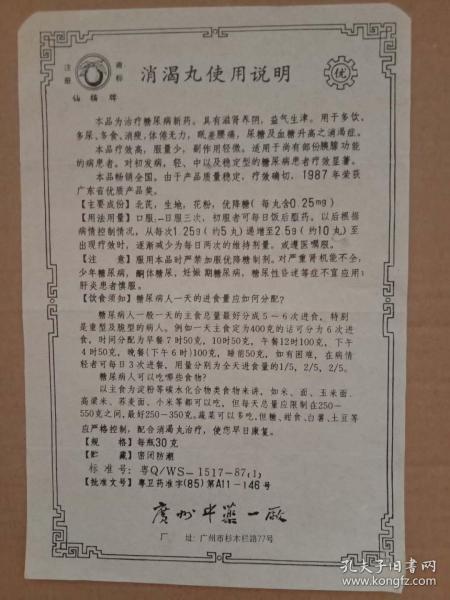 注册
商标
仙楼牌
优
消渴丸使用说明
本品为治疗糖尿病新药。具有滋肾养阴，益气生津。用于多饮，
多尿、多食、消瘦，体倦无力，眠差腰痛，尿糖及血糖升高之消渴症。
本品疗效高，服量少，副作用轻微。适用于尚有部份胰腺功能
的病患者。对初发病，轻、中以及稳定型的糖尿病患者疗效显著。
本品畅销全国。由于产品质量稳定，疗效确切，1987年荣获
广东省优质产品奖。
【主要成份】北芪，生地，花粉，优降糖（每丸含0.25mg）
【用法用量】口服：一日服三次，初服者可每日饭后服药。以后根据
病情控制情况，从每次1.25g（约5丸）递增至2.5g（约10丸）至
出现疗效时，逐渐减少为每日两次的维持剂量。或遵医嘱服。
【注　意】服用本品时严禁加服优降糖制剂。对严重肾机能不全，
少年糖尿病，酮体糖尿，妊娠期糖尿病，糖尿性昏迷等症不宜应用：
肝炎患者慎服。
【饮食须知】糖尿病人一天的进食量应如何分配？
糖尿病人一般一天的主食总量最好分成5－6次进食，特别
是重型及脆型的病人。例如一天主食定为400克的话可分为6次进
食，时间分配为早餐7时50克，10时50克，午餐12时100克，下午
4时50克，晚餐（下午6时）100克，睡前50克，如有困难，在病情
轻者可每日3次进餐，用量分别为全天进食量的1/5，2/5，2/5。
糖尿病人可以吃哪些食物？
以主食为淀粉等碳水化合物类食物来讲，如米、面、玉米面、
高粱米、荞麦面、小米等都可以吃，但每天总量应限制在250－
550克之间，最好250－350克。蔬菜可以多吃，但糖、甜食、白薯、土豆等
应严格控制，配合消渴丸治疗，使您早日康复。
【规　格】每瓶30克
【贮　藏】密闭防潮
标准号：粤Q/WS－1517－87(1)
【批准文号】粤卫药准字(85)第A11－146号
广州中药一厂
厂　址：广州市杉木栏路77号
孔夫子旧书网
www.kongfz.com